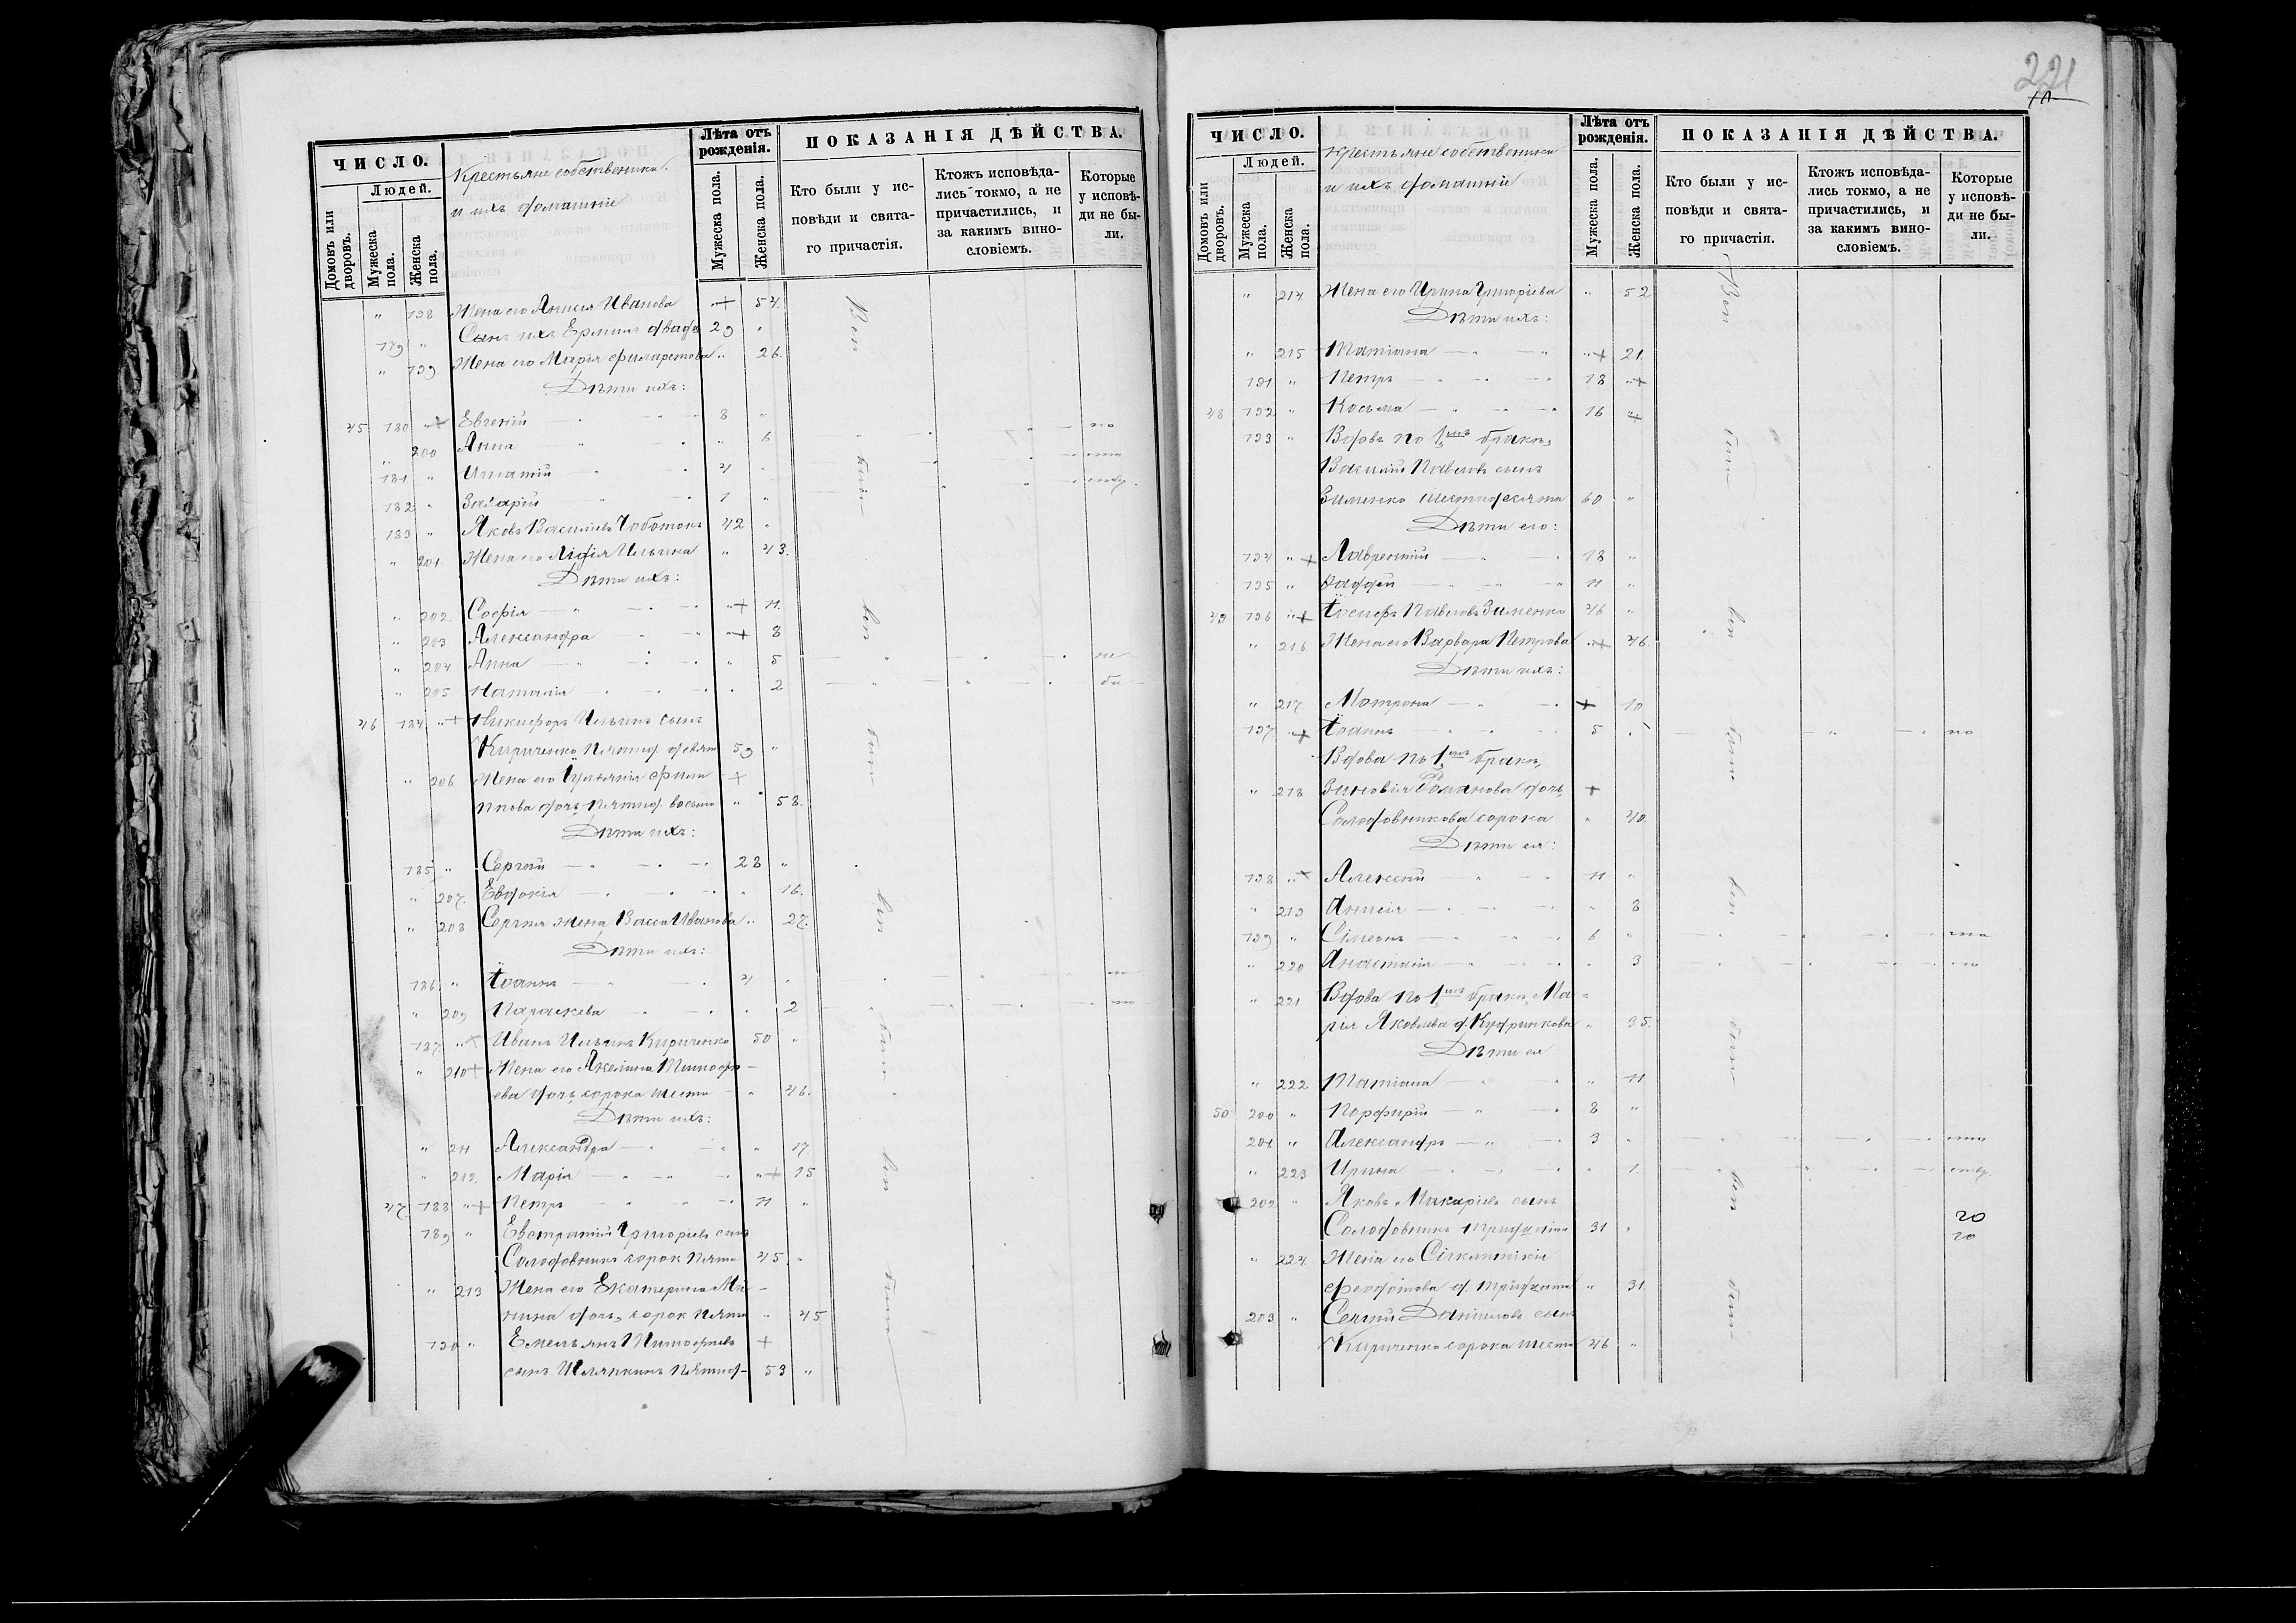 ЧИСЛО.
Людей.
Домовъ или дворовъ.
Мужеска пола.
Женска пола.
Крестьяне собственники
и ихъ домашніе
Лѣта отъ рожденія.
Мужеска пола.
Женска пола.
ПОКАЗАНІЯ ДѢЙСТВА.
Кто были у ис-
повѣди и свята-
го причастія.
Ктожъ исповѣда-
лись токмо, а не
причастились, и
за какимъ вино-
словіемъ.
Которые
у исповѣ-
ди не бы-
ли.
" 198 Жена его Анисія Иванова "+ 54.
179 " Сынъ ихъ Ермилъ двадц 29 "
" 199 Жена его Марія Филаретова " 26.
Дѣти ихъ:
45 180 "+ Евгеній 8 "
" 200 Анна " 6
181 " Игнатій 4 "
182 " Захарій 1 "
183 " Яковъ Васильевъ Чоботокъ 42 "
" 201 Жена его Лідія Ильина " 43.
Дѣти ихъ:
" 202 Софія "+ 11.
" 203 Александра "+ 8
" 204 Анна " 5
" 205 Наталія " 2
46 184 "+ Никифоръ Ильинъ сынъ
Кириченко пятид. девят 59 "
" 206 Жена его Іуліанія Фили +
ппова дочь пятид. восьми " 58.
Дѣти ихъ:
185 " Сергій 28 "
" 207 Евдокія " 16.
" 208 Сергія жена Васса Иванова " 27.
Дѣти ихъ:
186 " Іоаннъ 4 "
" 209 Параскева " 2
187 "+ Иванъ Ильинъ Кириченко 50 "
" 210+ Жена его Акелина Тимофѣ-
ева дочь сорока шести " 46.
Дѣти ихъ:
" 211 Александра " 17.
" 212 Марія "+ 15
47 188 "+ Петръ 11 "
189 " Евстратій Григоріевъ сынъ
Солодовникъ сорок пяти 45 "
" 213 Жена его Екатерина Ми-
нина дочь сорок пяти " 45
190 " Емельянъ Тимофѣевъ +
сынъ Шляпкинъ пятид- 53 "
221
ЧИСЛО.
Людей.
Домовъ или дворовъ.
Мужеска пола.
Женска пола.
Крестьяне собственники
и ихъ домашніе
Лѣта отъ рожденія.
Мужеска пола.
Женска пола.
ПОКАЗАНІЯ ДѢЙСТВА.
Кто были у ис-
повѣди и свята-
го причастія.
Ктожъ исповѣда-
лись токмо, а не
причастились, и
за какимъ вино-
словіемъ.
Которые
у исповѣ-
ди не бы-
ли.
" 214 Жена его Ирина Григоріева " 52
Дѣти ихъ:
" 215 Татіана "+ 21.
191 " Петръ 18 "+
48 192 " Косьма 16 "+
193 " Вдовъ по 1мъ бракѣ,
Василій Павловъ сынъ
Зименко шестидесяти 60 "
Дѣти его:
194 "+ Лаврентій 18 "
195 " Фаддей 11 "
49 196 "+ Іосифъ Павловъ Зименко 46 "
" 216 Жена его Варвара Петрова "+ 46.
Дѣти ихъ:
" 217 Мотрона + 10
197 "+ Іоаннъ 5 "
Вдова по 1мъ бракѣ,
" 218 Зиновія Романова дочь +
Солодовникова сорока " 40.
Дѣти ея:
198 "+ Алексій 11 "
" 219 Анисія " 8
199 " Сімеонъ 6 "
" 220 Анастасія " 3
" 221 Вдова по 1мъ бракѣ, Ма-
рія Яковлева д. Кудрикова " 35.
Дѣти ея
" 222 Татіана " 11
50 200 " Порфирій 8 "
201 " Александръ 3 "
" 223 Ирина " 1.
202 " Яковъ Макаріевъ сынъ
Солодовникъ тридцати 31 "
" 224 Жена его Сігклитікія
Феодотова д. тридцати " 31.
203 " Сергій Даніиловъ сынъ
Кириченко сорока шести 46 "
20
20